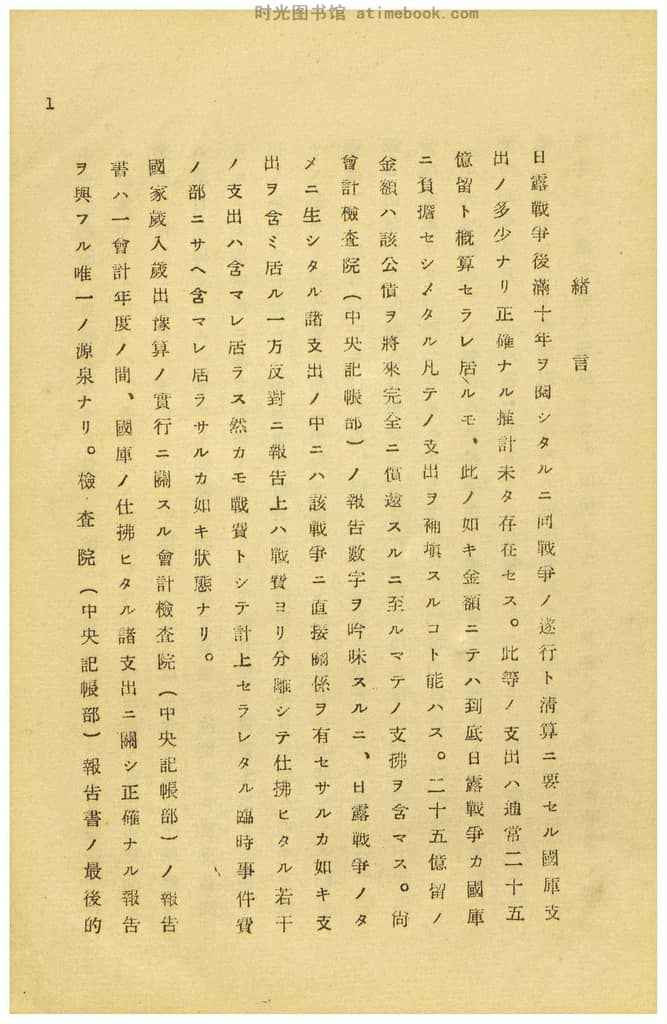 时光图书馆 atimebook.com
1
緒言
日露戰爭後滿十年ヲ閲シタルニ同戰爭ノ遂行ト淸算ニ要セル國庫支
出ノ多少ナリ正確ナル推計未タ存在セス。此等ノ支出ハ通常二十五
億留ト概算セラレ居ルモ、此ノ如キ金額ニテハ到底日露戰爭カ國庫
ニ負擔セシメタル凡テノ支出ヲ補塡スルコト能ハス。二十五億留ノ
金額ハ該公債ヲ將來完全ニ償還スルニ至ルマテノ支拂ヲ含マス。尙
會計檢査院(中央記帳部)ノ報告數字ヲ吟味スルニ、日露戰爭ノタ
メニ生シタル諸支出ノ中ニハ該戰爭ニ直接關係ヲ有セサルカ如キ支
出ヲ含ミ居ル一方反對ニ報告上ハ戰費ヨリ分離シテ仕拂ヒタル若干
ノ支出ハ含マレ居ラス然カモ戰費トシテ計上セラレタル臨時事件費
ノ部ニサヘ含マレ居ラサルカ如キ狀態ナリ。
國家歲入歲出豫算ノ實行ニ關スル會計檢査院(中央記帳部)ノ報告
書ハ一會計年度ノ間、國庫ノ仕拂ヒタル諸支出ニ關シ正確ナル報告
ヲ與フル唯一ノ源泉ナリ。檢査院(中央記帳部)報告書ノ最後的